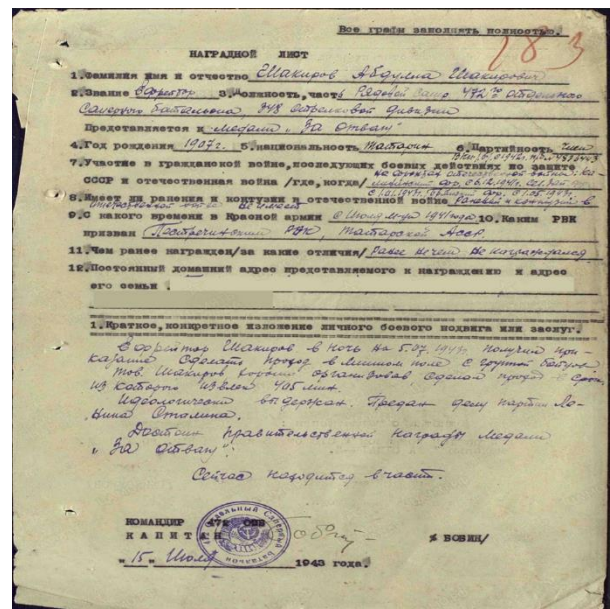 Все графы заполнять полностью.
183
НАГРАДНОЙ ЛИСТ
1.Фамилия имя и отчество Шакиров Абдулла Шакирович
2.Звание Ефрейтор 3.Должность, часть Рядовой сапер 472го отдельного
Саперного батальона 348 стрелковой дивизии
Представляется к медали „За отвагу"
4.Год рождения 1907г. 5.национальность Татарин 6.Партийность член
7.Участие в гражданской войне,последующих боевых действиях по защите
СССР и отечественная война /где,когда/
8.Имеет ли ранения и контузии в отечественной войне Ранений и контузий в
не имеет
9.С какого времени в Красной армии с 1941года 10.Каким РВК
призван Пестречинским РВК, Татарской АССР
11.Чем ранее награжден/за какие отличия/ Ранее ничем не награждался
12.Постоянный домашний адрес представляемого к награждению и адрес
его семьи
1.Краткое,конкретное изложение личного боевого подвига или заслуг.
Ефрейтор Шакиров в ночь на 5.07.1943г. получил при-
казание сделать проход в минном поле с группой
тов. Шакиров хорошо организовав сделал проход в срок
из которого извлек 405 мин.
Идеологически выдержан. Предан делу партии Ле-
нина Сталина.
Достоин правительственной награды медали
„За отвагу".
Сейчас находится в части.
КОМАНДИР 472 ОСБ
КАПИТАН / БОВИН/
„15" Июля 1943 года.